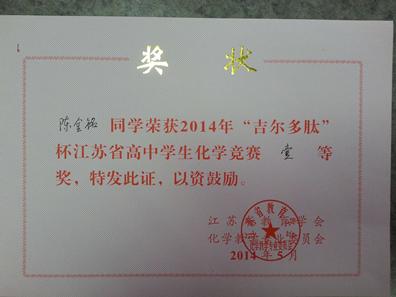 奖状
陈金铭 同学荣获2014年“吉尔多肽”
杯江苏省高中学生化学竞赛 壹 等
奖，特发此证，以资鼓励。
江苏 教 学会
化学教 业委员会
2014年5月